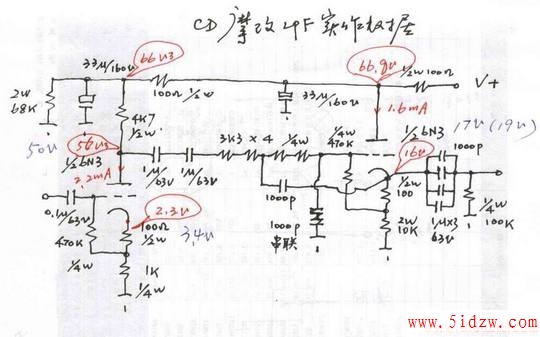 CD 摩改 LPF 实作数据
66V3
66.9V
33μ/160V
100Ω
1/2W
33μ/160V
1/2W 100Ω
V+
2W
68K
4K7
1/2W
1.6mA
17V (19V)
50V
56V3
1/2 6N3
2.2mA
1μ/63V
1μ/63V
3K3 × 4
1/4W
1/4W
470K
1/2 6N3
16V
1000p
0.1μ/63V
2.3V
3.4V
100Ω
1/2W
470K
1/4W
1K
1/4W
1000p
1000p
串联
1/2W
100
2W
10K
1μ×3
63V
1/4W
100K
www.5idzw.com